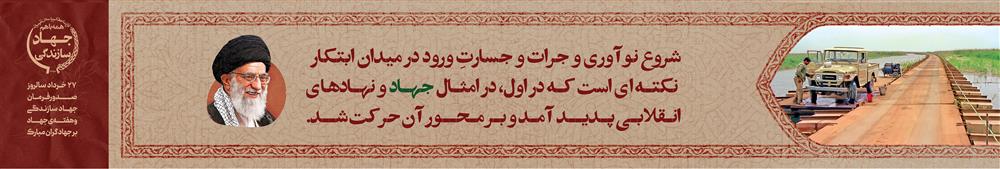 شروع نوآوری و جرات و جسارتِ ورود در میدان ابتکار
نکته‌ای است که در اول، در امثال جهاد و نهادهای
انقلابی پدید آمد و بر محور آن حرکت شد.
همه با هم
جهاد
سازندگی
۲۷ خرداد سالروز
صدور فرمان
جهاد سازندگی
و هفته‌ی جهاد
بر جهادگران مبارک